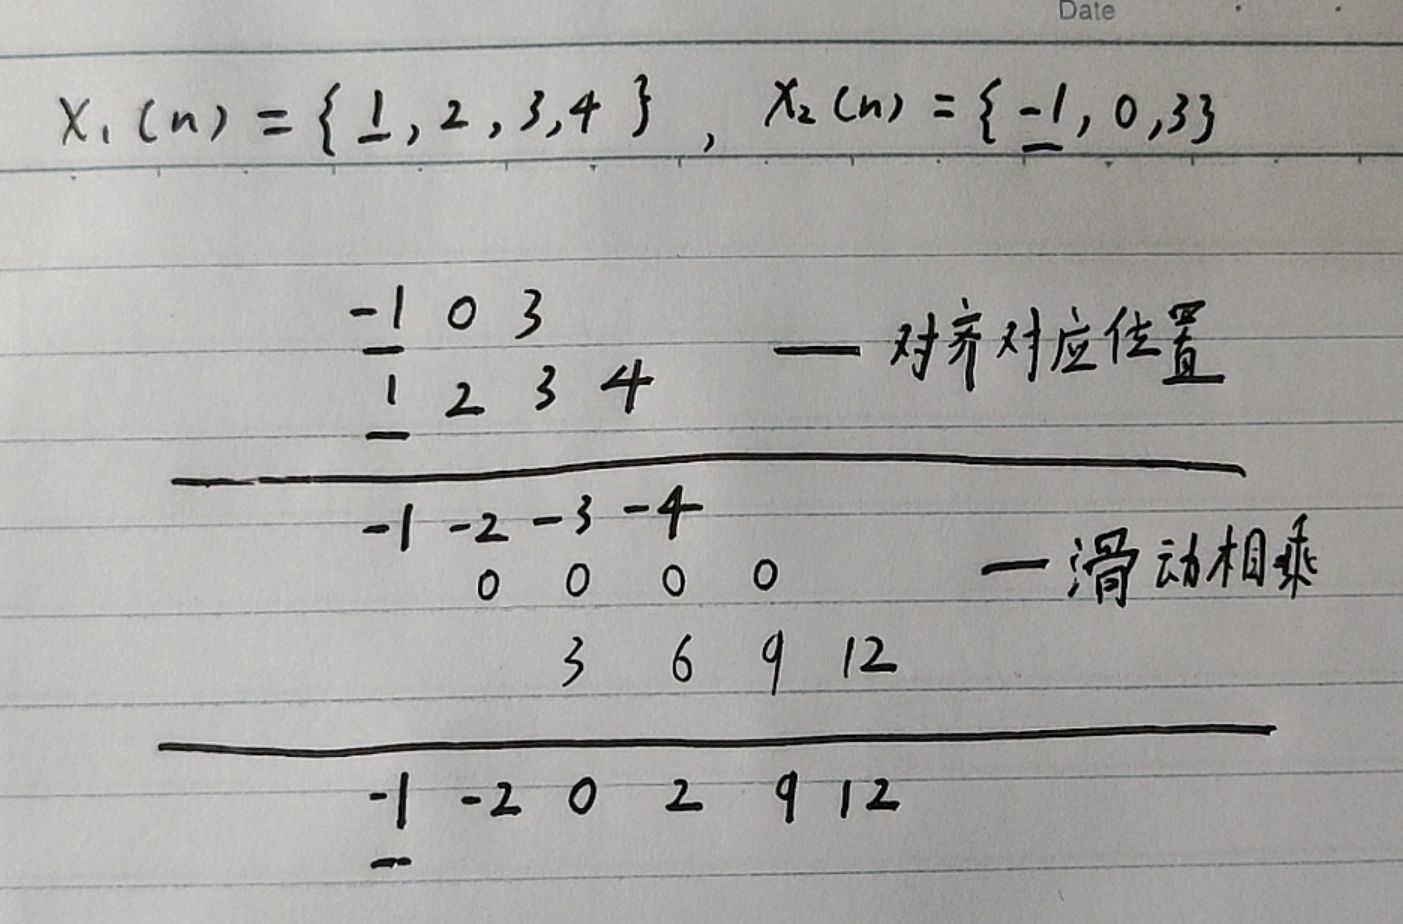 Date
X₁(n) = { 1, 2, 3, 4 } , X₂(n) = { -1, 0, 3 }
-1 0 3
— 对齐对应位置
1 2 3 4
-1 -2 -3 -4
0 0 0 0 — 滑动相乘
3 6 9 12
-1 -2 0 2 9 12